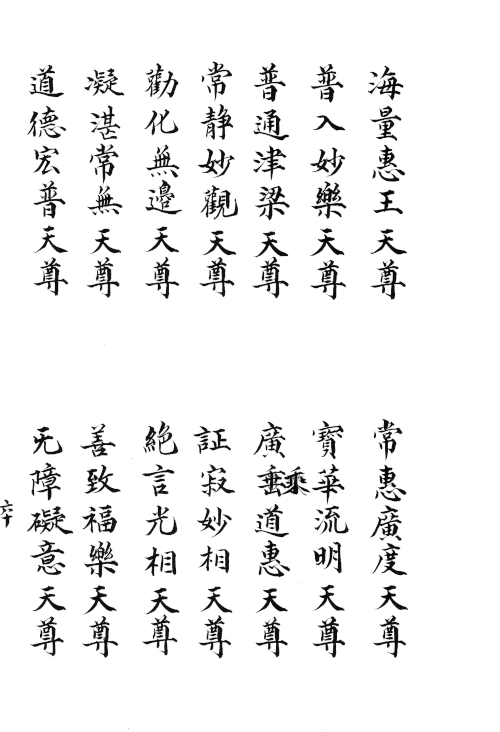 海量惠王天尊
普入妙樂天尊
普通津梁天尊
常静妙觀天尊
勸化無邊天尊
凝湛常無天尊
道德宏普天尊
常惠廣度天尊
寳華流明天尊
廣乘道惠天尊
証寂妙相天尊
絶言光相天尊
善致福樂天尊
无障礙意天尊
六十